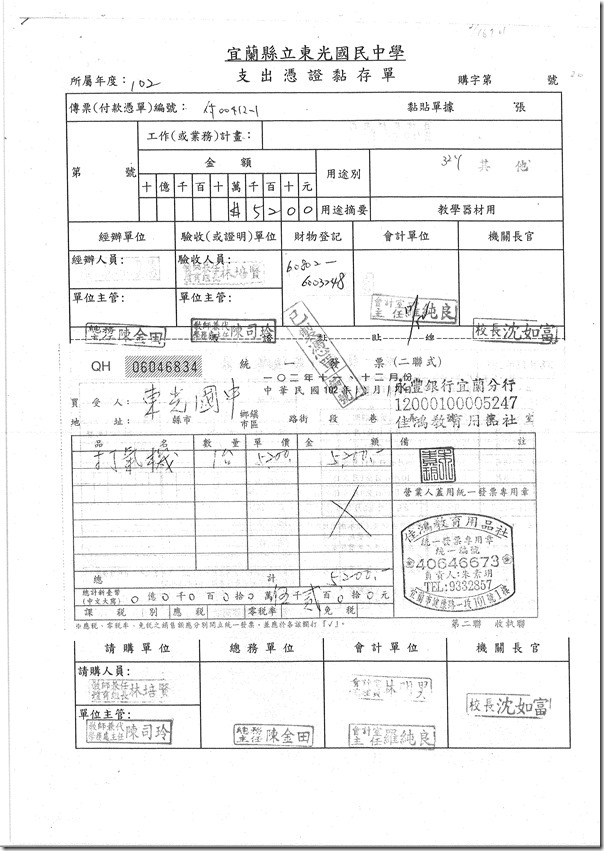 宜蘭縣立東光國民中學
支出憑證黏存單
所屬年度:102
購字第 號
傳票(付款憑單)編號: 付00412-1
黏貼單據 張
第 號
工作(或業務)計畫:
金額
用途別
327 其他
十億千百十萬千百十元
$5200
用途摘要
教學器材用
經辦單位
驗收(或證明)單位
財物登記
會計單位
機關長官
經辦人員:
驗收人員:
林培賢
60802-
6003248
單位主管:
單位主管:
會計室主任 羅純良
總務主任 陳金田
教師兼代學務處主任 陳司玲
校長沈如富
貼 線
QH 06046834
統一發票(二聯式)
一〇二年十一、十二月份
中華民國102年
買受人: 東光國中
地址: 縣市 鄉鎮市區 路街 段 巷 室
永豐銀行宜蘭分行
12000100005247
佳鴻教育用品社
品名 數量 單價 金額 備註
打氣機 1台 5200. 5200.-
營業人蓋用統一發票專用章
佳鴻教育用品社
統一發票專用章
統一編號
40646673
TEL:9332357
總計 5200.-
總計新臺幣
(中文大寫)
0億0千0百0拾0萬伍千貳百0拾0元
課稅別 應稅 零稅率 免稅
※應稅、零稅率、免稅之銷售額應分別開立統一發票,並應於各該欄打「√」。
第二聯 收執聯
請購單位
總務單位
會計單位
機關長官
請購人員:
教師兼任體育組長 林培賢
單位主管:
教師兼代學務處主任 陳司玲
總務主任 陳金田
會計室主任 羅純良
校長沈如富